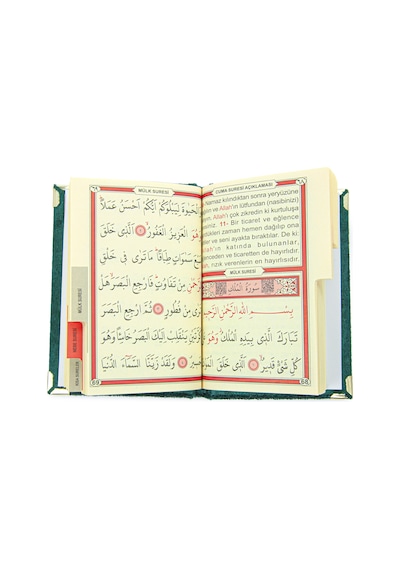 CUMA SURESİ AÇIKLAMASI
namaz kılındıktan sonra yeryüzüne
ve Allah'ın lütfundan (nasibinizi)
Allah'ı çok zikredin ki kurtuluşa
11- Bir ticaret ve eğlence
zaman hemen dağılıp ona
ve seni ayakta bıraktılar. De ki:
Allah'ın katında bulunanlar,
ve ticaretten de hayırlıdır.
rızık verenlerin en hayırlısıdır.
MÜLK SURESİ
سورة الملك
بِسْمِ اللّٰهِ الرَّحْمٰنِ الرَّحِيمِ
تَبَارَكَ الَّذِى بِيَدِهِ الْمُلْكُ وَهُوَ
كُلِّ شَىْءٍ قَدِيرٌ الَّذِى خَلَقَ
68
MÜLK SURESİ
وَالْحَيٰوةَ لِيَبْلُوَكُمْ اَيُّكُمْ اَحْسَنُ عَمَلًا
وَهُوَ الْعَزِيزُ الْغَفُورُ الَّذِى خَلَقَ
سَمٰوَاتٍ طِبَاقًا مَا تَرٰى فِى خَلْقِ
مِنْ تَفَاوُتٍ فَارْجِعِ الْبَصَرَ هَلْ
مِنْ فُطُورٍ ثُمَّ ارْجِعِ الْبَصَرَ
يَنْقَلِبْ اِلَيْكَ الْبَصَرُ خَاسِئًا وَهُوَ
حَسِيرٌ وَلَقَدْ زَيَّنَّا السَّمَاءَ الدُّنْيَا
69
MÜLK SURESİ
KISA SURELER